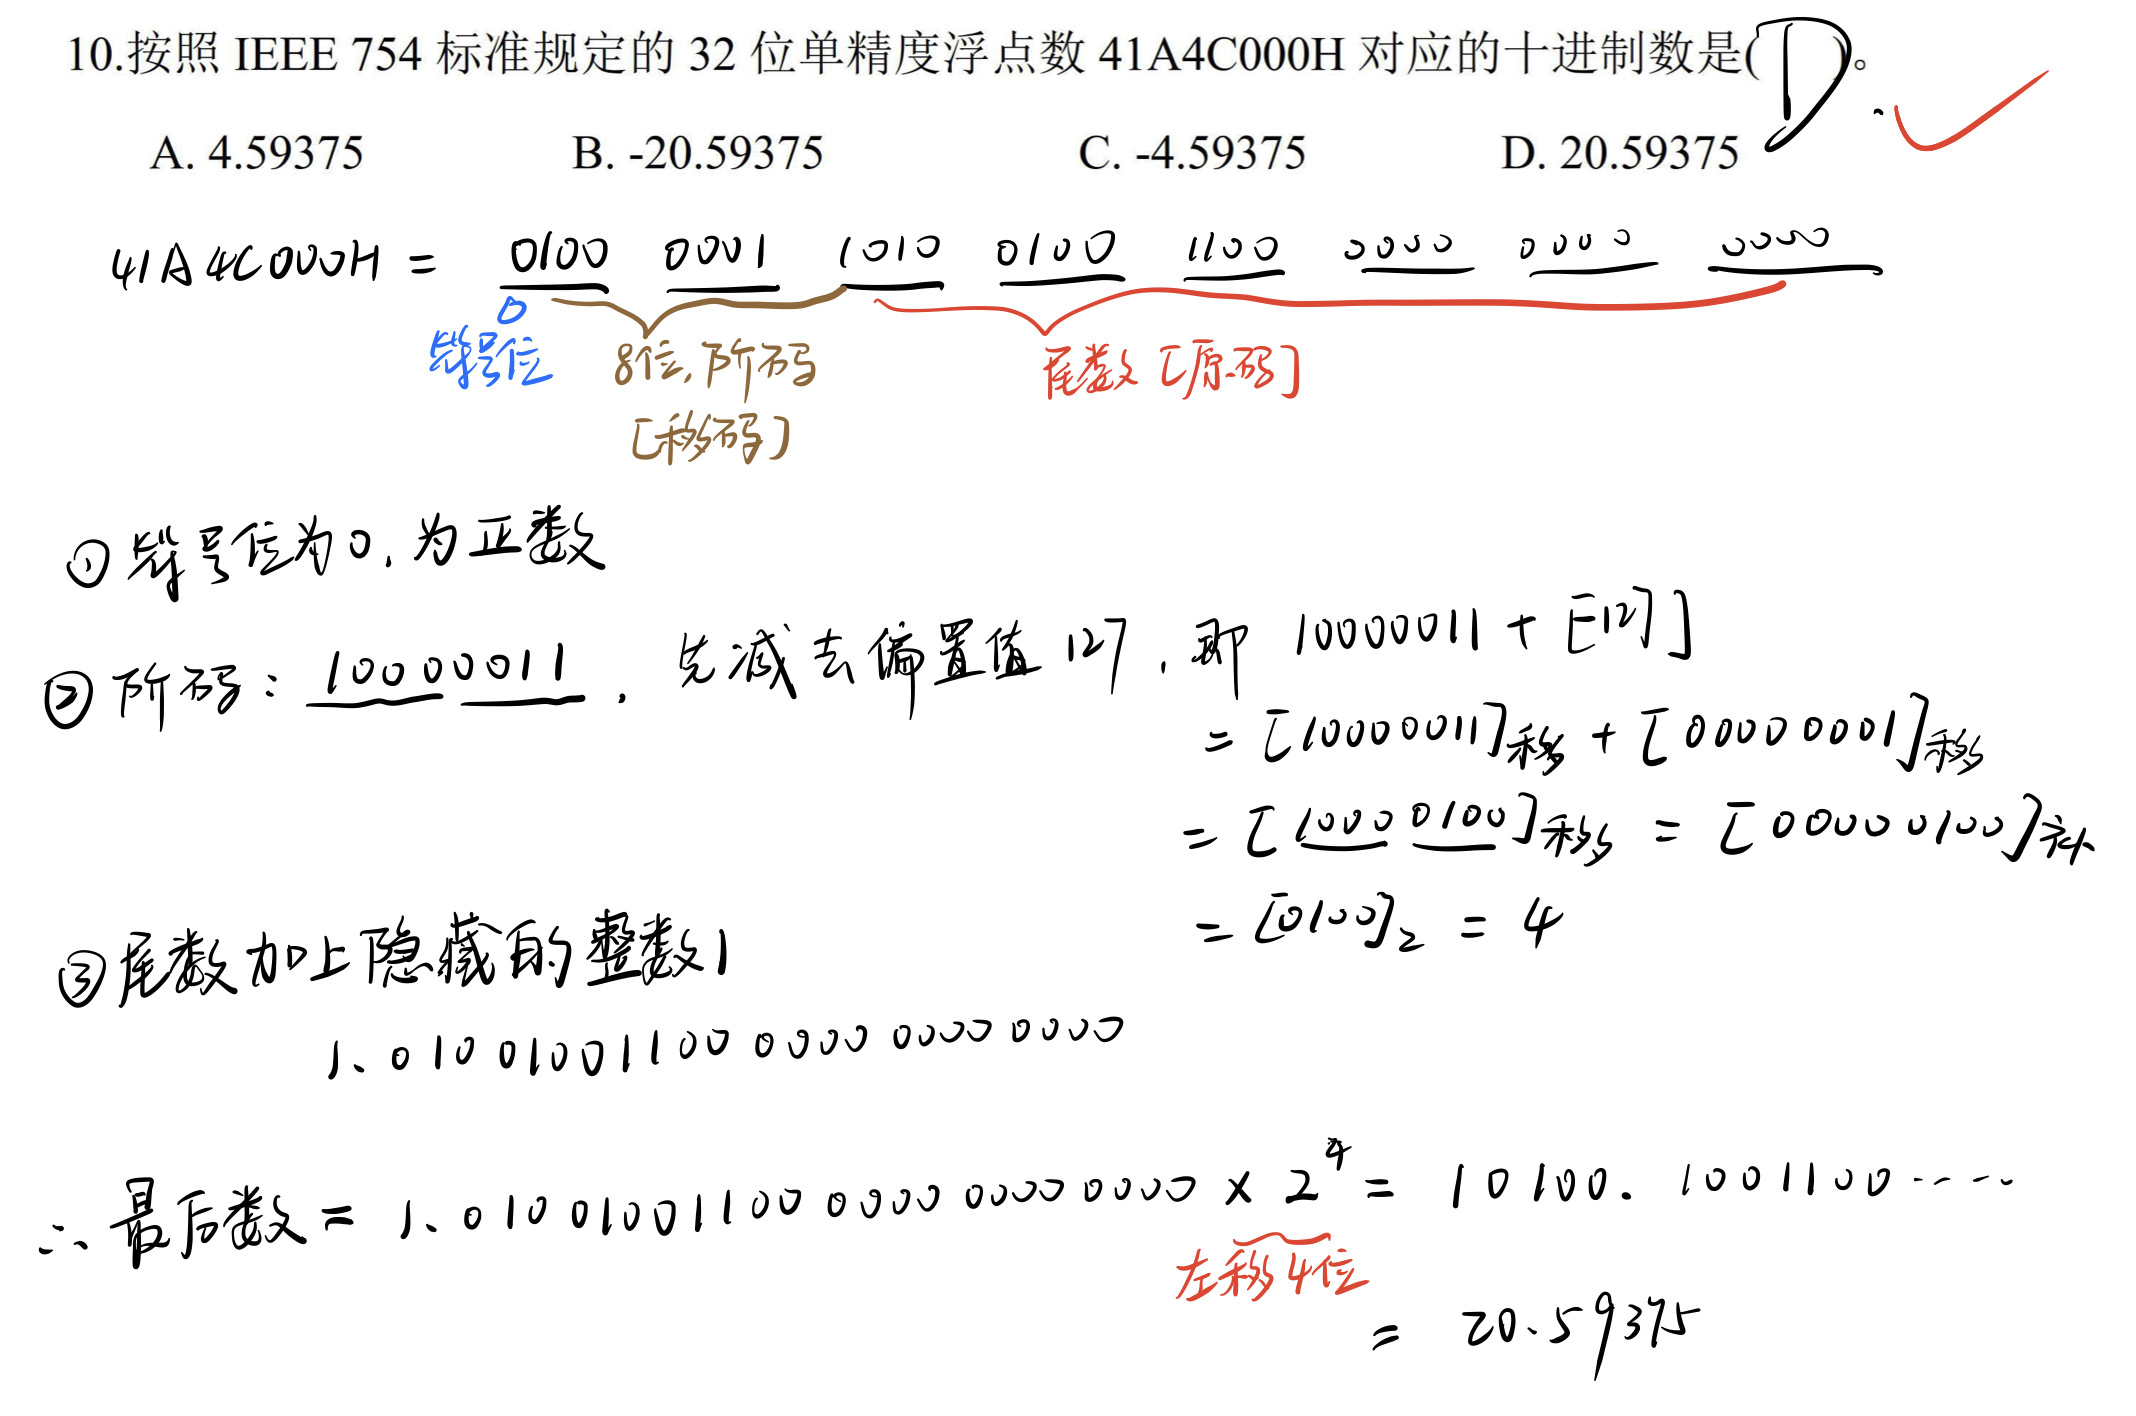 10.按照 IEEE 754 标准规定的 32 位单精度浮点数 41A4C000H 对应的十进制数是( D )。
A. 4.59375 B. -20.59375 C. -4.59375 D. 20.59375
41A4C000H = 0100 0001 1010 0100 1100 0000 0000 0000
0
符号位 8位,阶码 尾数[原码]
[移码]
①符号位为0,为正数
②阶码: 10000011, 先减去偏置值127,即 10000011 + [127]
= [10000011]移 + [00000001]移
= [1000 0100]移 = [00000100]补
= [0100]2 = 4
③尾数加上隐藏的整数1
1.01001001100 0000 0000 0000
∴最后数 = 1.01001001100 0000 0000 0000 × 2^4 = 10100.1001100·····
左移4位
= 20.59375